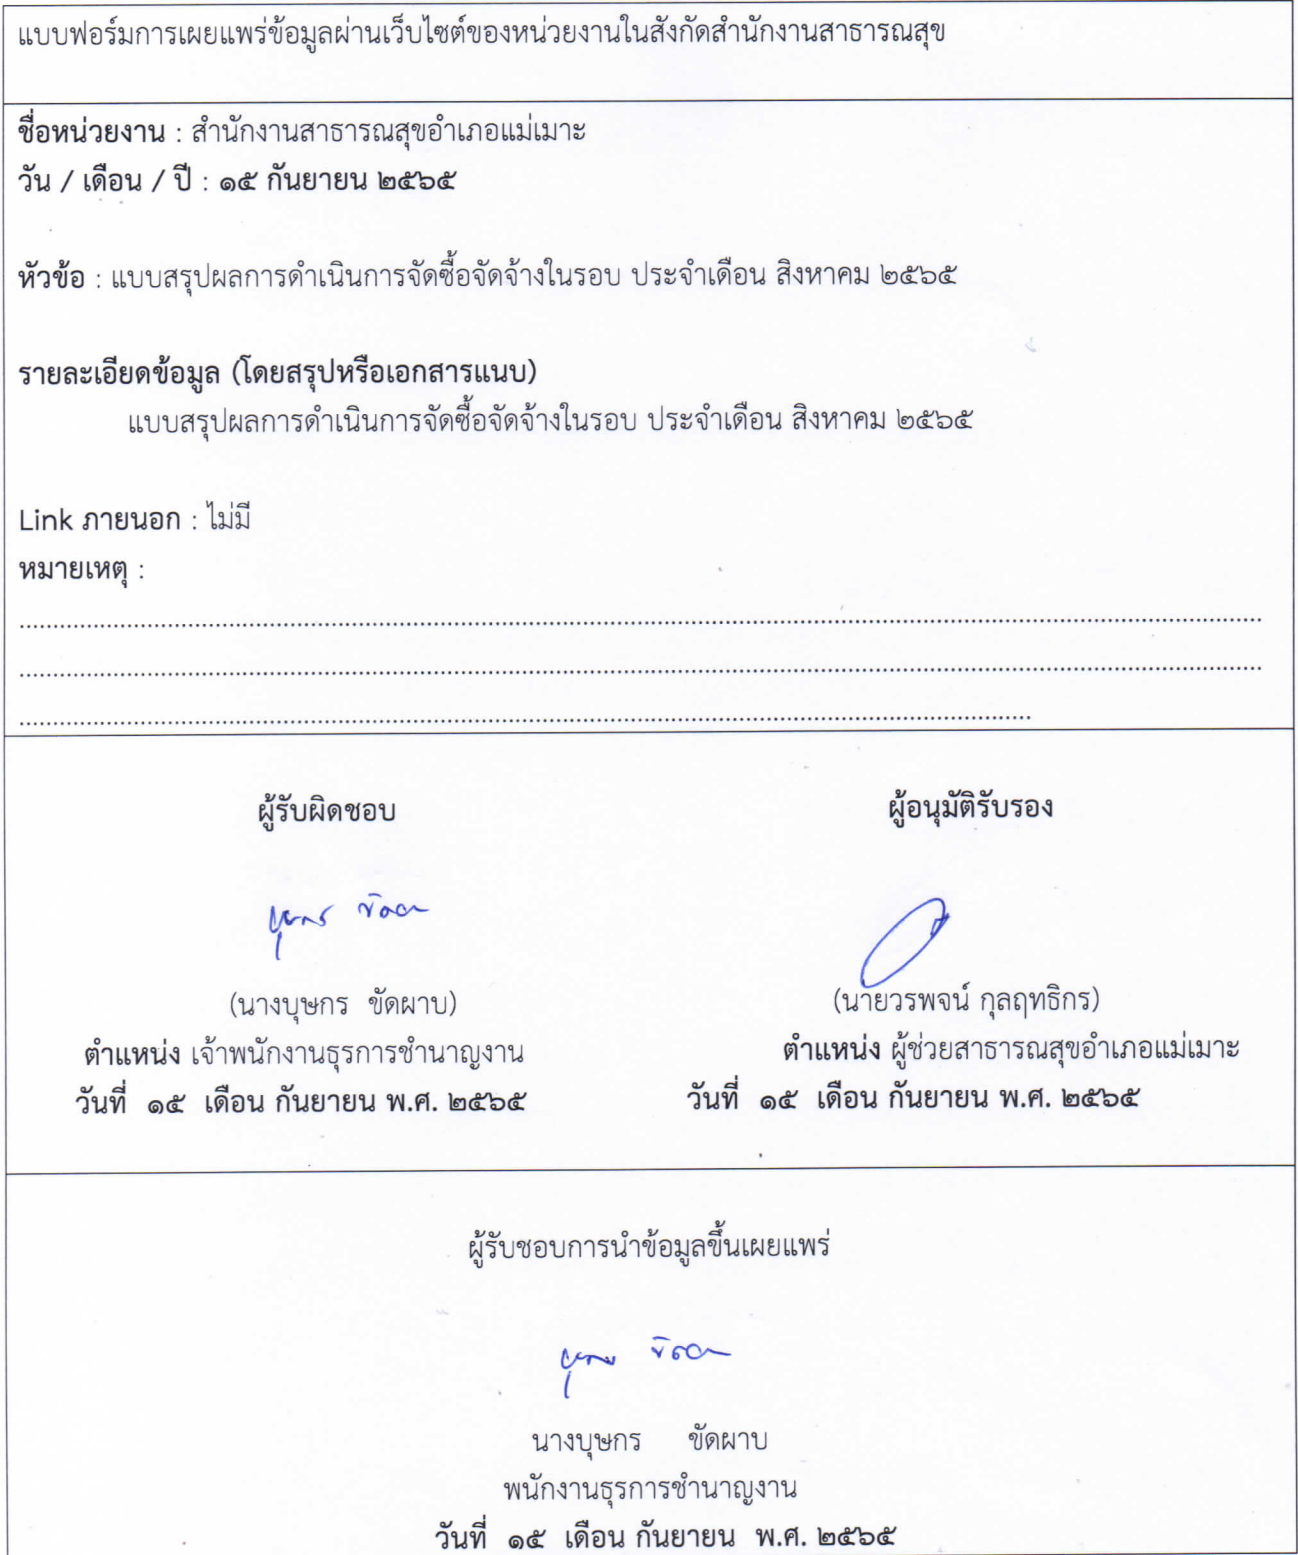 แบบฟอร์มการเผยแพร่ข้อมูลผ่านเว็บไซต์ของหน่วยงานในสังกัดสำนักงานสาธารณสุข
ชื่อหน่วยงาน : สำนักงานสาธารณสุขอำเภอแม่เมาะ
วัน / เดือน / ปี : ๑๕ กันยายน ๒๕๖๕
หัวข้อ : แบบสรุปผลการดำเนินการจัดซื้อจัดจ้างในรอบ ประจำเดือน สิงหาคม ๒๕๖๕
รายละเอียดข้อมูล (โดยสรุปหรือเอกสารแนบ)
แบบสรุปผลการดำเนินการจัดซื้อจัดจ้างในรอบ ประจำเดือน สิงหาคม ๒๕๖๕
Link ภายนอก : ไม่มี
หมายเหตุ :
ผู้รับผิดชอบ
(นางบุษกร ขัดผาบ)
ตำแหน่ง เจ้าพนักงานธุรการชำนาญงาน
วันที่ ๑๕ เดือน กันยายน พ.ศ. ๒๕๖๕
ผู้อนุมัติรับรอง
(นายวรพจน์ กุลฤทธิกร)
ตำแหน่ง ผู้ช่วยสาธารณสุขอำเภอแม่เมาะ
วันที่ ๑๕ เดือน กันยายน พ.ศ. ๒๕๖๕
ผู้รับชอบการนำข้อมูลขึ้นเผยแพร่
นางบุษกร ขัดผาบ
พนักงานธุรการชำนาญงาน
วันที่ ๑๕ เดือน กันยายน พ.ศ. ๒๕๖๕